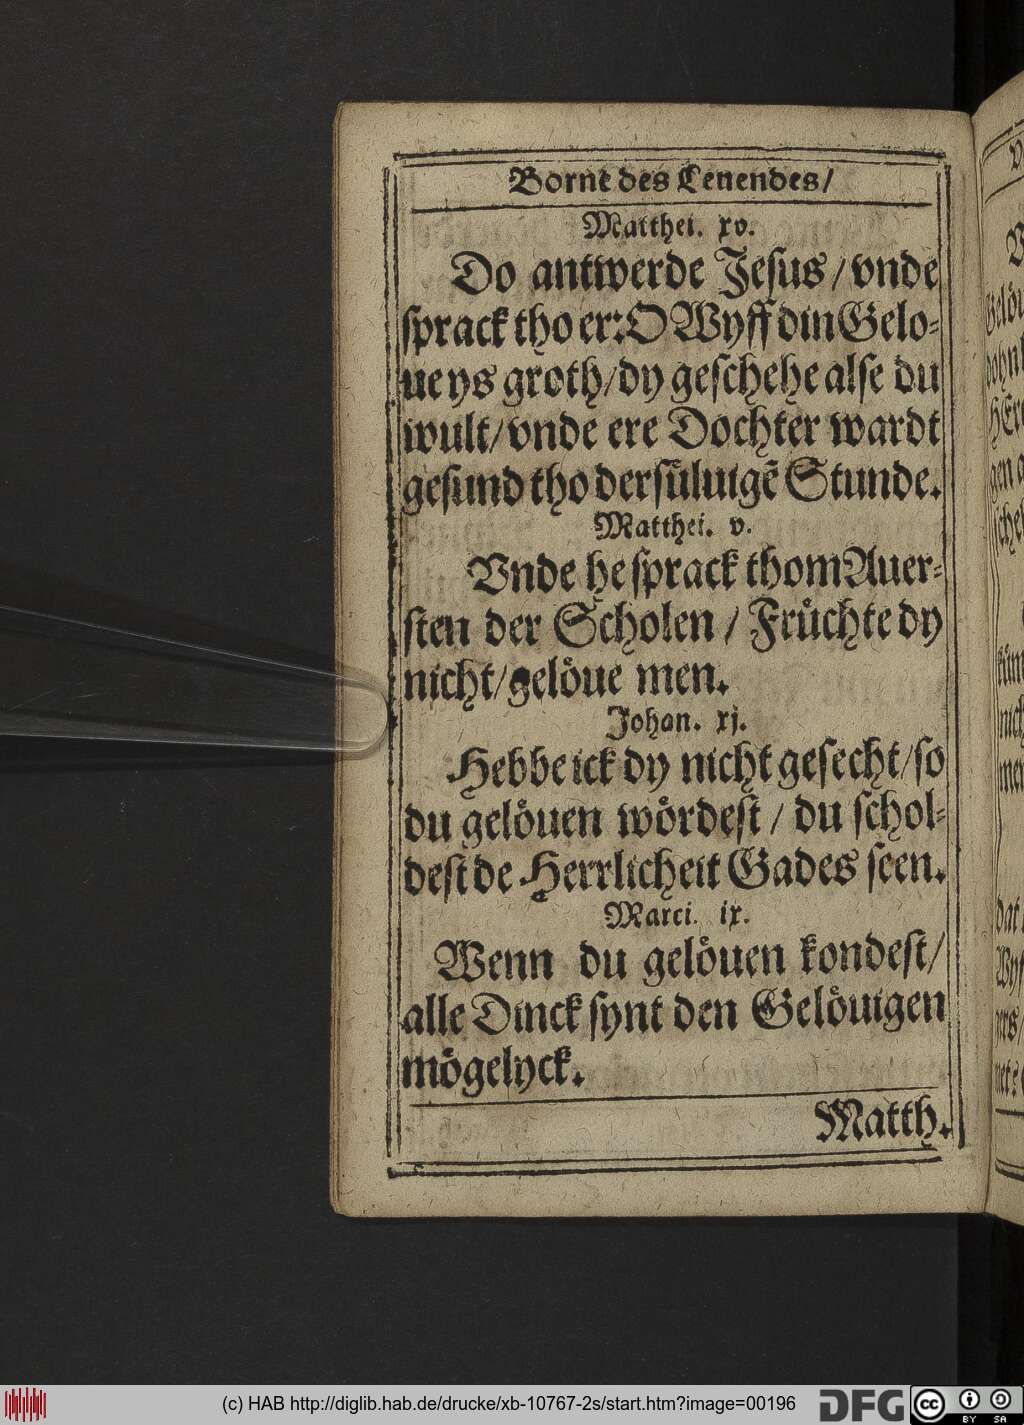 Borne des Leuendes/
Matthei. xv.
Do antwerde Jesus/ vnde
sprack tho er: O Wyff din Gelo-
ue ys groth/ dy geschehe alse du
wult/ vnde ere Dochter wardt
gesund tho dersüluigẽ Stunde.
Matthei. v.
Vnde he sprack thom Auer-
sten der Scholen / Früchte dy
nicht/ gelöue men.
Johan. xj.
Hebbe ick dy nicht gesecht/ so
du gelöuen wördest / du schol-
dest de Herrlicheit Gades seen.
Marci. ix.
Wenn du gelöuen kondest/
alle Dinck synt den Gelöuigen
mögelyck.
Matth.
(c) HAB http://diglib.hab.de/drucke/xb-10767-2s/start.htm?image=00196
DFG
cc
BY
SA